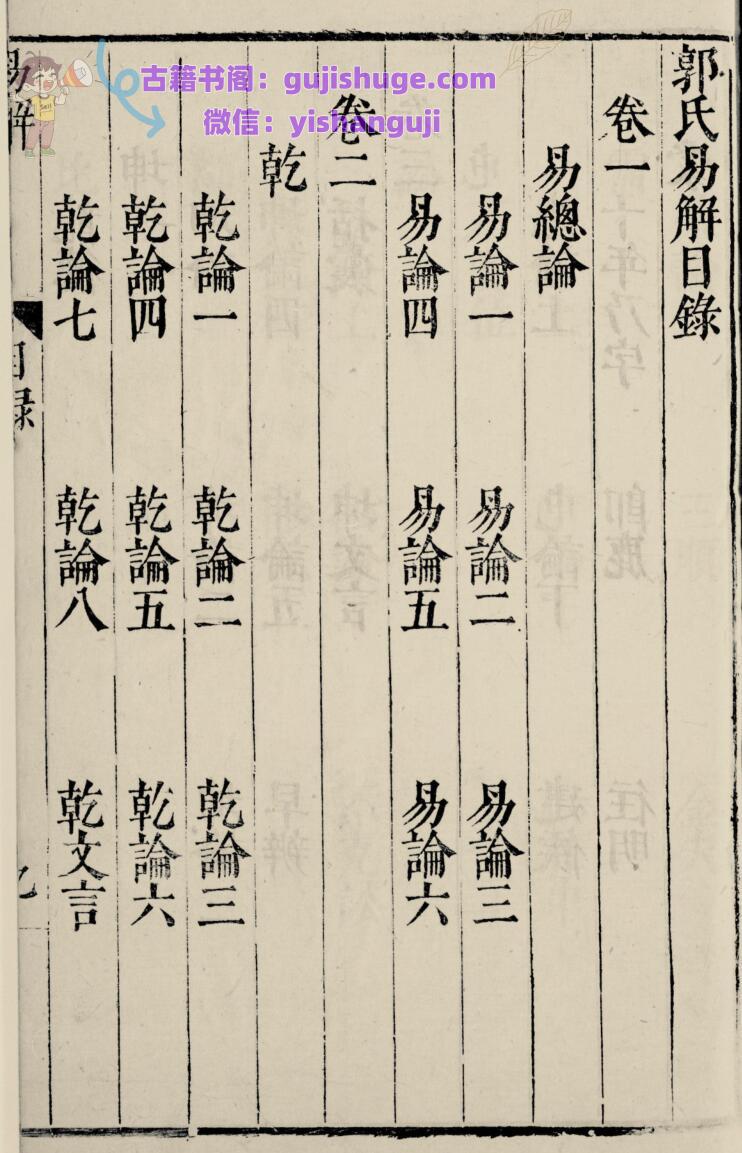 古籍书阁：gujishuge.com
微信：yishanguji
郭氏易解目錄
卷一
易總論
易論一　易論二　易論三
易論四　易論五　易論六
卷二
乾
乾論一　乾論二　乾論三
乾論四　乾論五　乾論六
乾論七　乾論八　乾文言
易解　目録